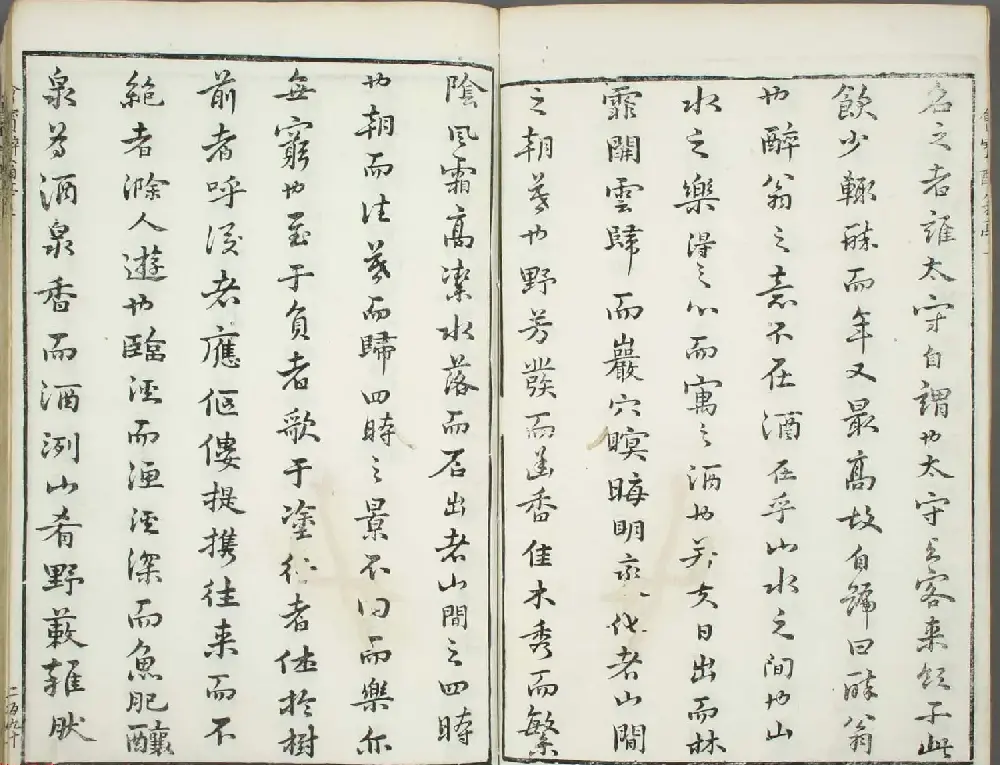 名之者誰太守自謂也太守與客來飲于此
飲少輒醉而年又最高故自號曰醉翁
也醉翁之意不在酒在乎山水之間也山
水之樂得之心而寓之酒也若夫日出而林
霏開雲歸而巖穴暝晦明變化者山間
之朝暮也野芳發而幽香佳木秀而繁
陰風霜高潔水落而石出者山間之四時
也朝而往暮而歸四時之景不同而樂亦
無窮也至于負者歌于塗行者休於樹
前者呼後者應傴僂提攜往來而不
絕者滁人遊也臨溪而漁溪深而魚肥釀
泉為酒泉香而酒洌山肴野蔌雜然